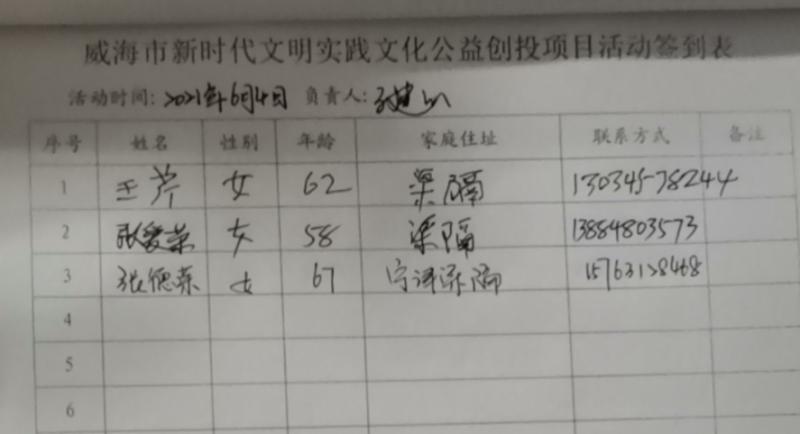 威海市新时代文明实践文化公益创投项目活动签到表
活动时间：2021年6月4日 负责人：
序号 姓名 性别 年龄 家庭住址 联系方式 备注
1 王芹 女 62 梁隔 13034578244
2 张爱荣 女 58 梁隔 13884803573
3 张德荣 女 67 梁隔 15763128468
4
5
6